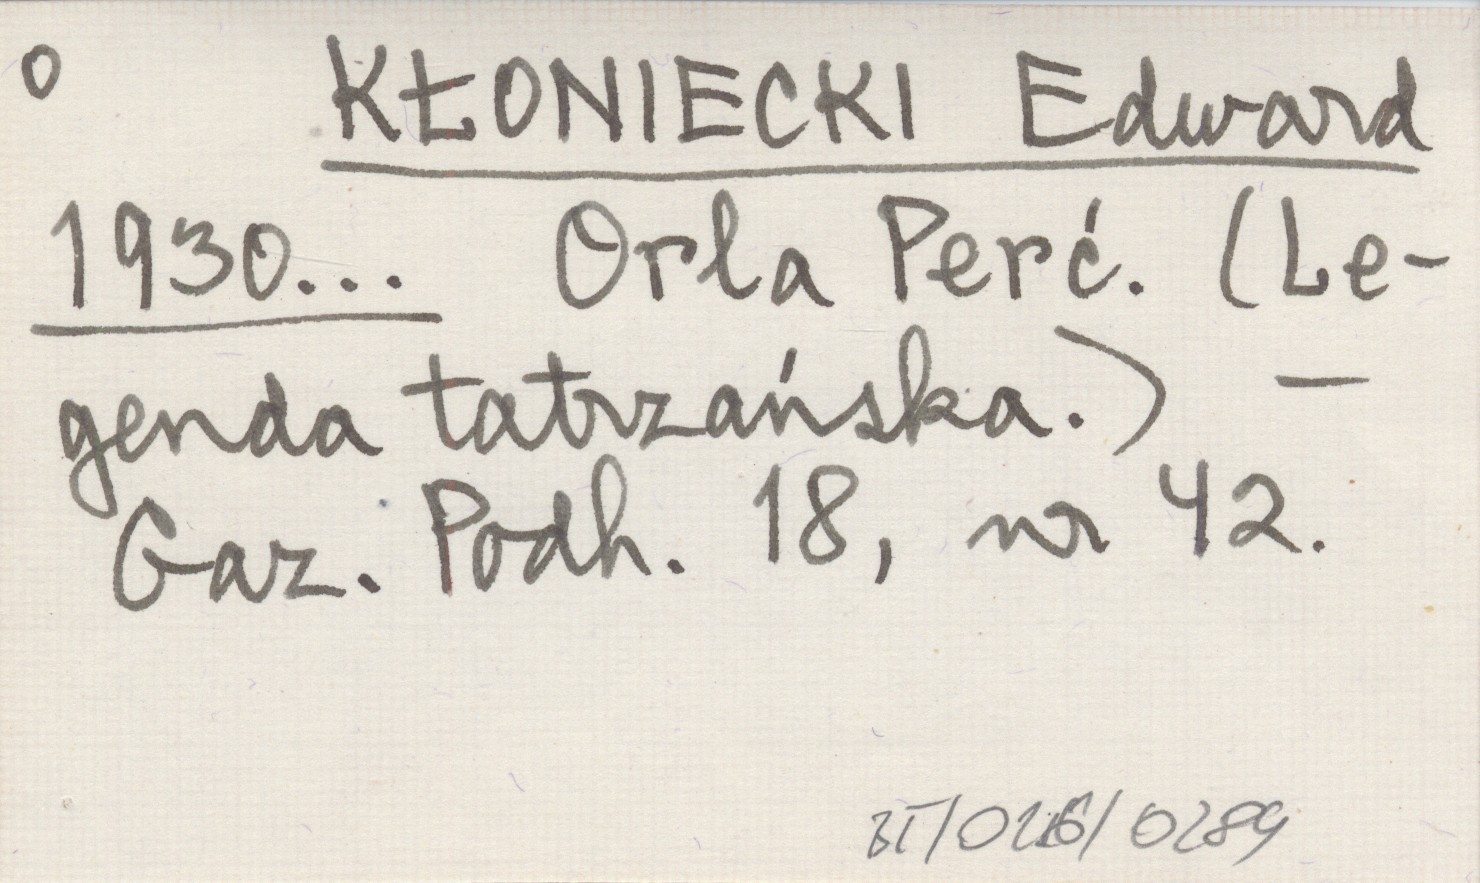 o KŁONIECKI Edward
1930... Orla Perć. (Le-
genda tatrzańska.) —
Gaz. Podh. 18, nr 42.
BT/026/0289